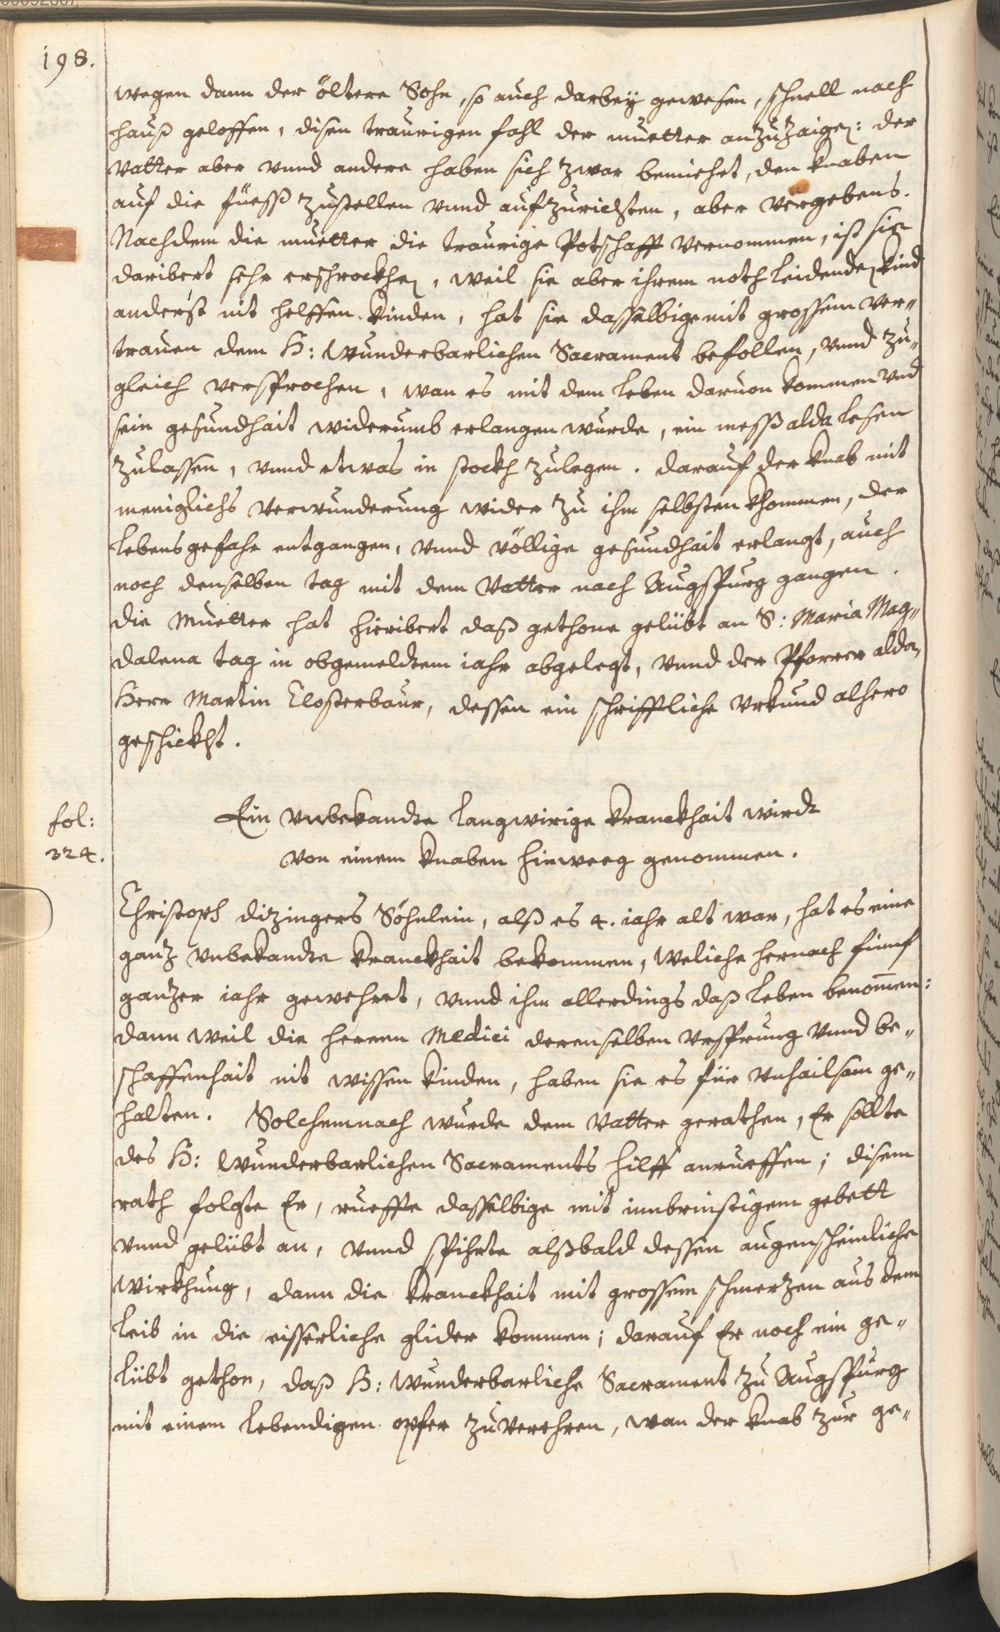 198.
wegen dann der öltere Sohn, so auch darbey gewesen, schnell nach
hauß geloffen, disen traurigen fahl der muetter anzuzaigen: der
Vatter aber vnnd andere haben sich zwar bemiehet, den knaben
auf die füeß zustellen vnnd aufzurichten, aber vergebens.
Nachdem die muetter die traurige Potschafft vernommen, ist sie
daribert sehr erschrockhen, weil sie aber ihrem noth leidenden kind
anderst nit helffen kinden, hat sie dasselbige mit grossem ver-
trauen dem H: Wunderbarlichen Sacrament befollen, vnnd zu-
gleich versprochen, wan es mit dem leben daruon kommen vnd
sein gesundhait widerumb erlangen wurde, ein mess alda lesen
zulassen, vnnd etwas in stockh zulegen. darauf der knab mit
meniglichs verwunderung wider zu ihm selbsten khommen, der
lebens gefahr entgangen, vnnd völlige gesundhait erlangt, auch
noch denselben tag mit dem Vatter nach Augspurg gangen.
die Muetter hat hieribert daß gethone gelübt an S: Maria Mag-
dalena tag in obgemeldtem iahr abgelegt, vnnd der Pfarrer alda
Herr Martin Closterbaur, dessen ein schrifftliche vrkund alhero
geschickht.
fol:
324.
Ein vnbekandte langwirige kranckhait wirdt
von einem knaben hinweeg genommen.
Christoph ditzingers Söhnlein, alß es 4. iahr alt war, hat es eine
gantz vnbekandte kranckhait bekommen, weliche hernach fünf
gantzer iahr gewehret, vnnd ihm allerdings daß leben benommen:
dann weil die herren Medici derenselben vrsprung vnnd be-
schaffenhait nit wissen kinden, haben sie es für vnhailsam ge-
halten. Solchemnach wurde dem Vatter gerathen, Er sollte
des H: Wunderbarlichen Sacraments hilff anrueffen; disem
rath folgte Er, rueffte dasselbige mit innbrinstigem gebett
vnnd gelübt an, vnnd spihrte alßbald dessen augenscheinliche
wirkhung, dann die kranckhait mit grossem schmertzen aus dem
leib in die eisserliche glider kommen; darauf Er noch ein ge-
lübt gethon, daß H: Wunderbarliche Sacrament zu Augspurg
mit einem lebendigen opfer zuverehren, wan der knab zur ge-